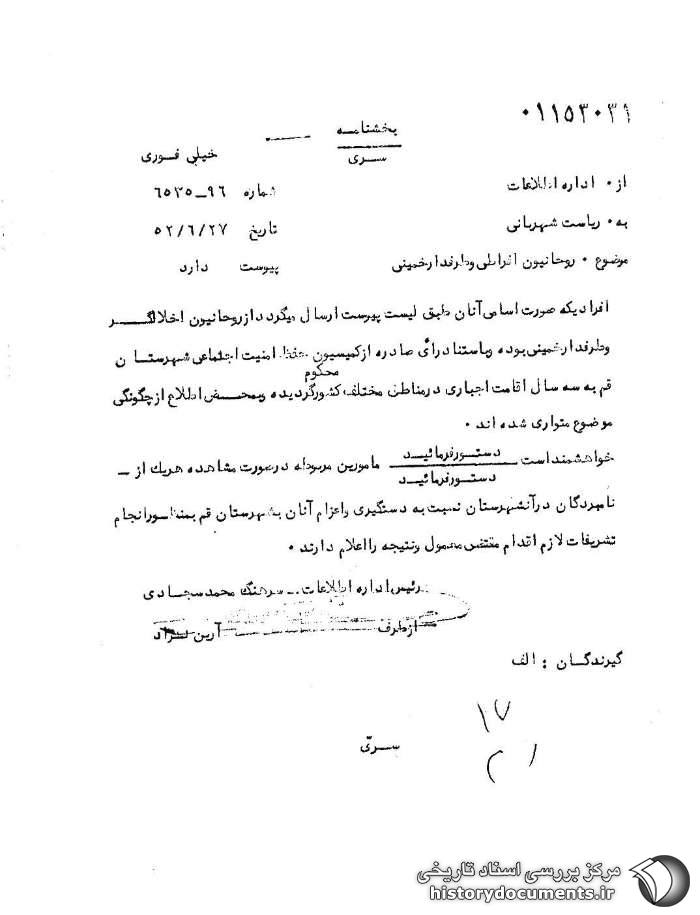 ۰۱۱۵۳۰۳۹
بخشنامه
سری
خیلی فوری
از ۰ اداره اطلاعات
شماره ۹۶ــ۶۵۳۵
به ۰ ریاست شهربانی
تاریخ ۵۲/۶/۲۷
موضوع ۰ روحانیون افراطی وطرفدارخمینی
پیوست دارد
افرادیکه صورت اسامی آنان طبق لیست پیوست ارسال میگردد ازروحانیون اخلالگر
وطرفدارخمینی بوده وباستناد رأی صادره ازکمیسیون حفظ امنیت اجتماعی شهرستان
محکوم
قم به سه سال اقامت اجباری درمناطق مختلف کشورگردیده وبمحض اطلاع ازچگونگی
موضوع متواری شده اند ۰
خواهشمنداست دستورفرمائید مامورین مربوطه درصورت مشاهده هریک از ــ
دستورفرمائید
نامبردگان درآنشهرستان نسبت به دستگیری واعزام آنان بشهرستان قم بمنظورانجام
تشریفات لازم اقدام مقتضی معمول ونتیجه رااعلام دارند ۰
رئیس اداره اطلاعات ــ سرهنگ محمدسجادی
ازطرف آرین نژاد
گیرندگان : الف
۱۷
۲۱
سرّی
مرکز بررسی اسناد تاریخی
historydocuments.ir